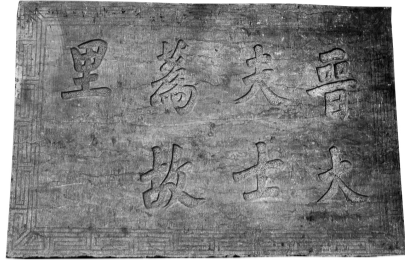 晋大
夫士
蒍故
里